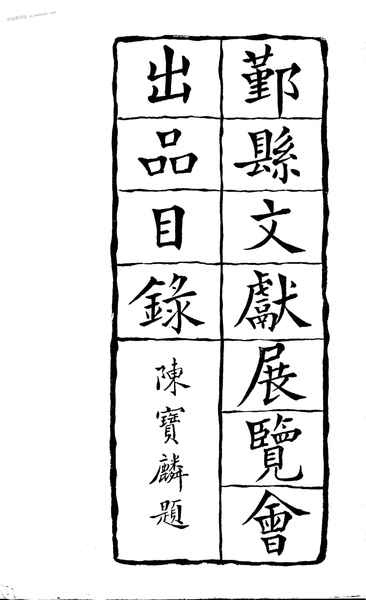 鄞縣文獻展覽會
出品目錄
陳寶麟題